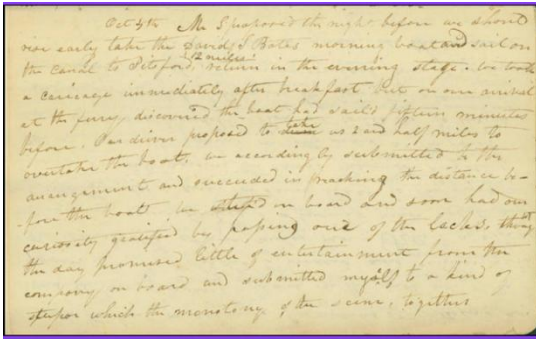 Oct 4th Mr S proposed the night before we should
rise early take the David S Bates morning boat and sail on
the canal to Pitsford, 12 miles return in the evening stage. We took
a carriage immediately after breakfast but on our arrival
at the ferry, discovered the boat had sail'd fifteen minutes
before. Our driver proposed to take us 2 and half miles to
overtake the boat, we accordingly submitted to the
arrangement and succeeded in reaching the distance be-
fore the boat. We step'd on board and soon had our
curiosity gratified by passing one of the Locks,
the day promised little of entertainment from the
company on board and submitted myself to a kind of
stupor which the monotony of the scene, together